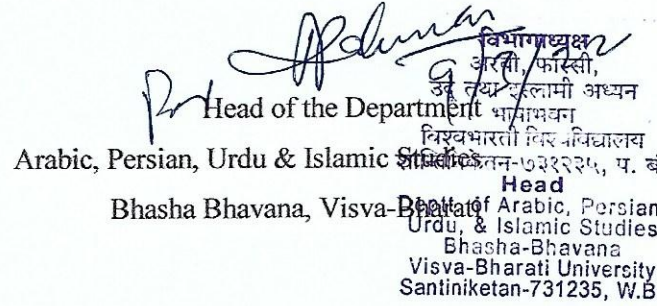 9/3/22
Head of the Department
Arabic, Persian, Urdu & Islamic Studies
Bhasha Bhavana, Visva-Bharati
विभागाध्यक्ष
अरबी, फारसी,
उर्दू तथा इस्लामी अध्यन
भाषाभवन
विश्वभारती विश्वविद्यालय
शांतिनिकेतन-७३१२३५, प. बं
Head
Deptt. of Arabic, Persian
Urdu, & Islamic Studies
Bhasha-Bhavana
Visva-Bharati University
Santiniketan-731235, W.B